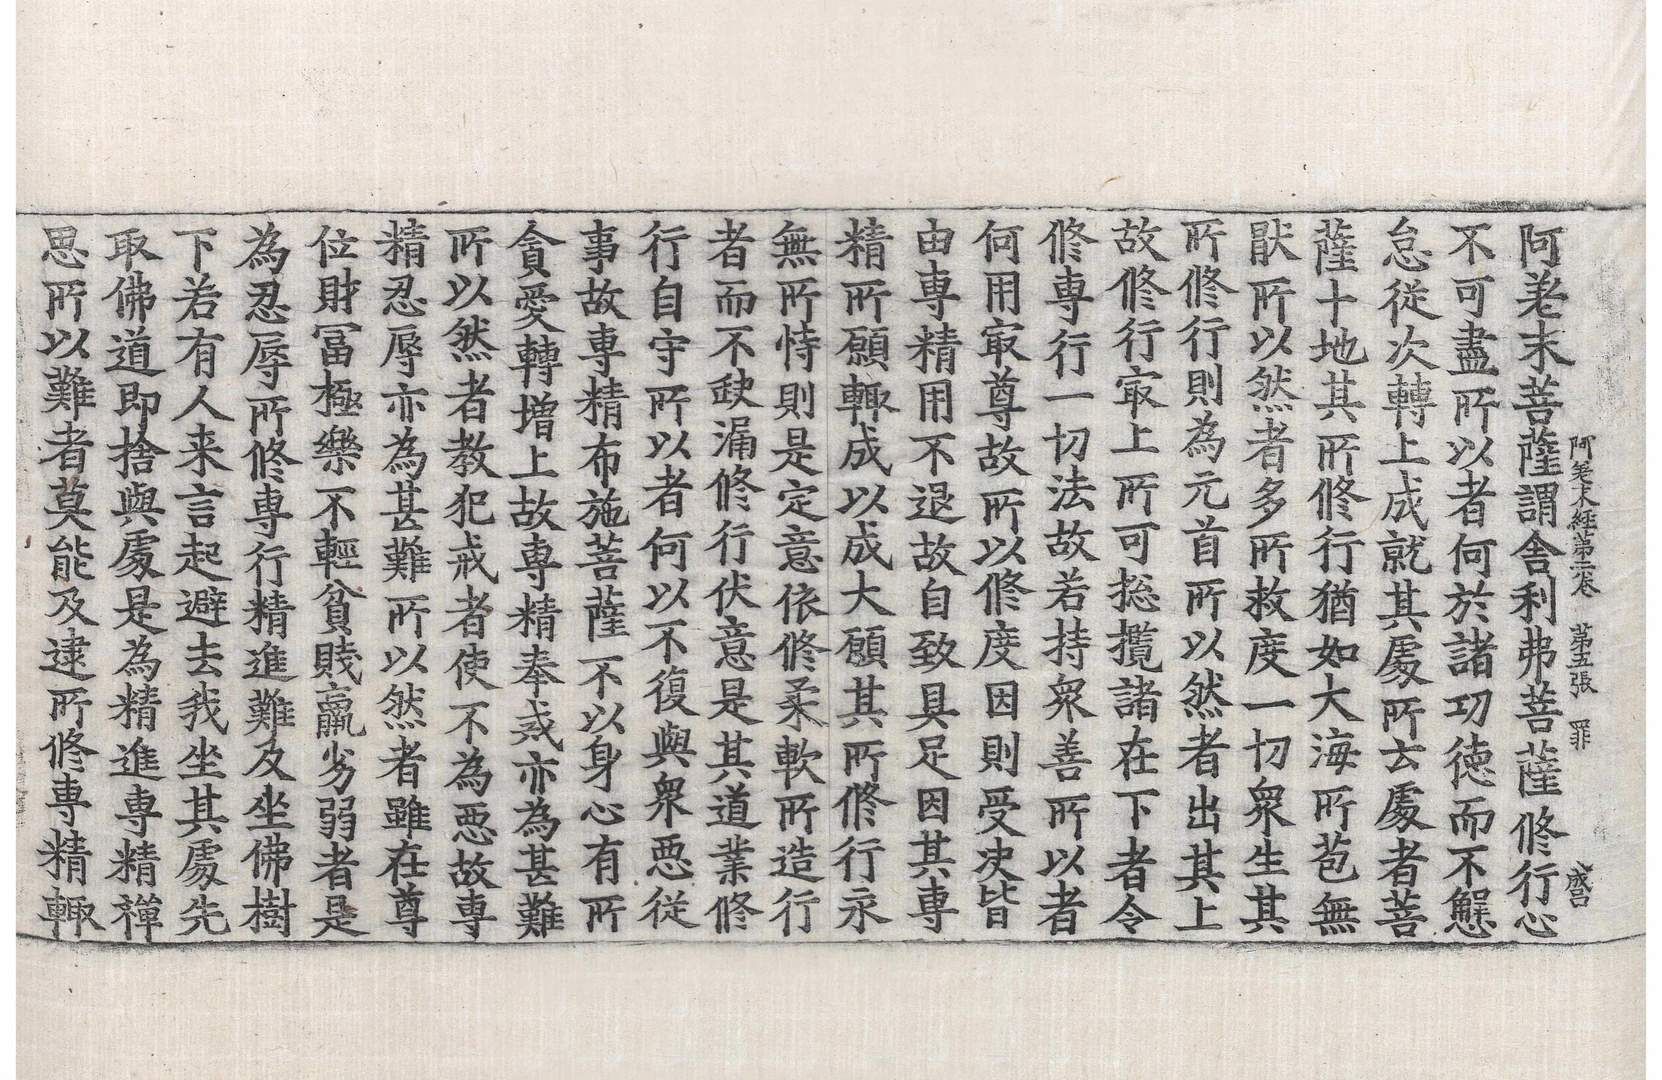 阿差末經第二卷　第五張　罪
阿差末菩薩謂舍利弗菩薩修行心
不可盡所以者何於諸功德而不懈
怠從次轉上成就其處所去處者菩
薩十地其所修行猶如大海所苞無
猒所以然者多所救度一切衆生其
所修行則為元首所以然者出其上
故修行㝡上所可捴攬諸在下者令
修專行一切法故若持衆善所以者
何用㝡尊故所以修度因則受决皆
由專精用不退故自致具足因其專
精所願輙成以成大願其所修行永
無所恃則是定意依修柔軟所造行
者而不缺漏修行伏意是其道業修
行自守所以者何以不復與衆惡從
事故專精布施菩薩不以身心有所
貪愛轉增上故專精奉戒亦為甚難
所以然者教犯戒者使不為惡故專
精忍辱亦為甚難所以然者雖在尊
位財富極樂不輕貧賤羸劣弱者是
為忍辱所修專行精進難及坐佛樹
下若有人来言起避去我坐其處先
取佛道即捨與處是為精進專精禪
思所以難者莫能及逮所修專精輙